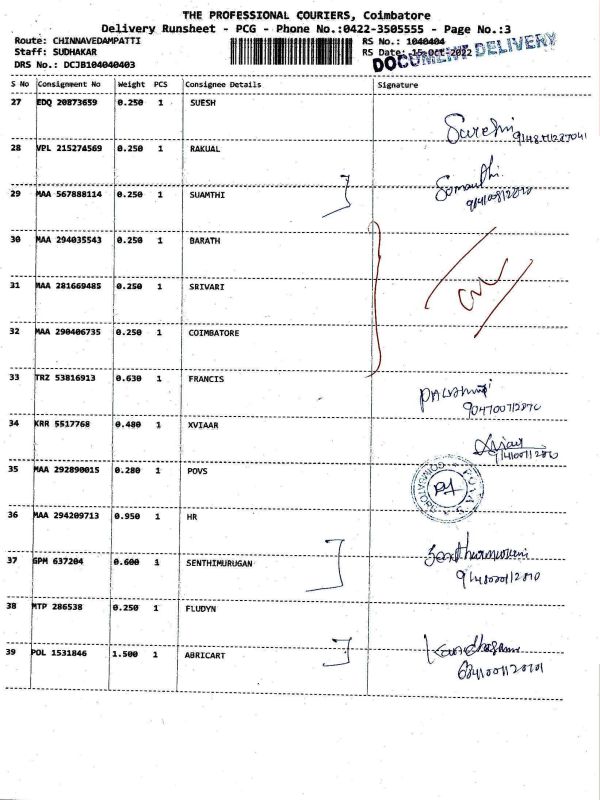 THE PROFESSIONAL COURIERS, Coimbatore
Delivery Runsheet - PCG - Phone No.:0422-3505555 - Page No.:3
Route: CHINNAVEDAMPATTI
RS No.: 1040404
Staff: SUDHAKAR
RS Date: 15-Oct-2022
DRS No.: DCJB104040403
DOCUMENT DELIVERY
S No Consignment No Weight PCS Consignee Details Signature
27 EDQ 20873659 0.250 1 SUESH
Sureshi
28 VPL 215274569 0.250 1 RAKUAL
29 MAA 567888114 0.250 1 SUAMTHI
30 MAA 294035543 0.250 1 BARATH
31 MAA 281669485 0.250 1 SRIVARI
32 MAA 290406735 0.250 1 COIMBATORE
33 TRZ 53816913 0.630 1 FRANCIS
34 KRR 5517768 0.480 1 XVIAAR
35 MAA 292890015 0.280 1 POVS
36 MAA 294209713 0.950 1 HR
37 GPM 637204 0.600 1 SENTHIMURUGAN
38 MTP 286538 0.250 1 FLUDYN
39 POL 1531846 1.500 1 ABRICART